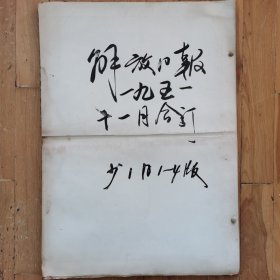 解放日报
一九五一
十一月合订
少1日1-4版